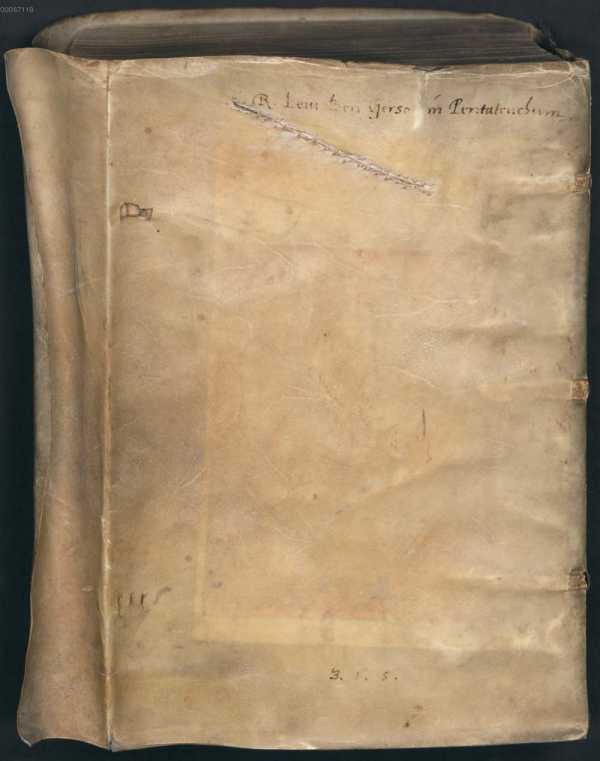 00057119
R. Leui ben Gerso in Pentateuchum
3. 1. 5.